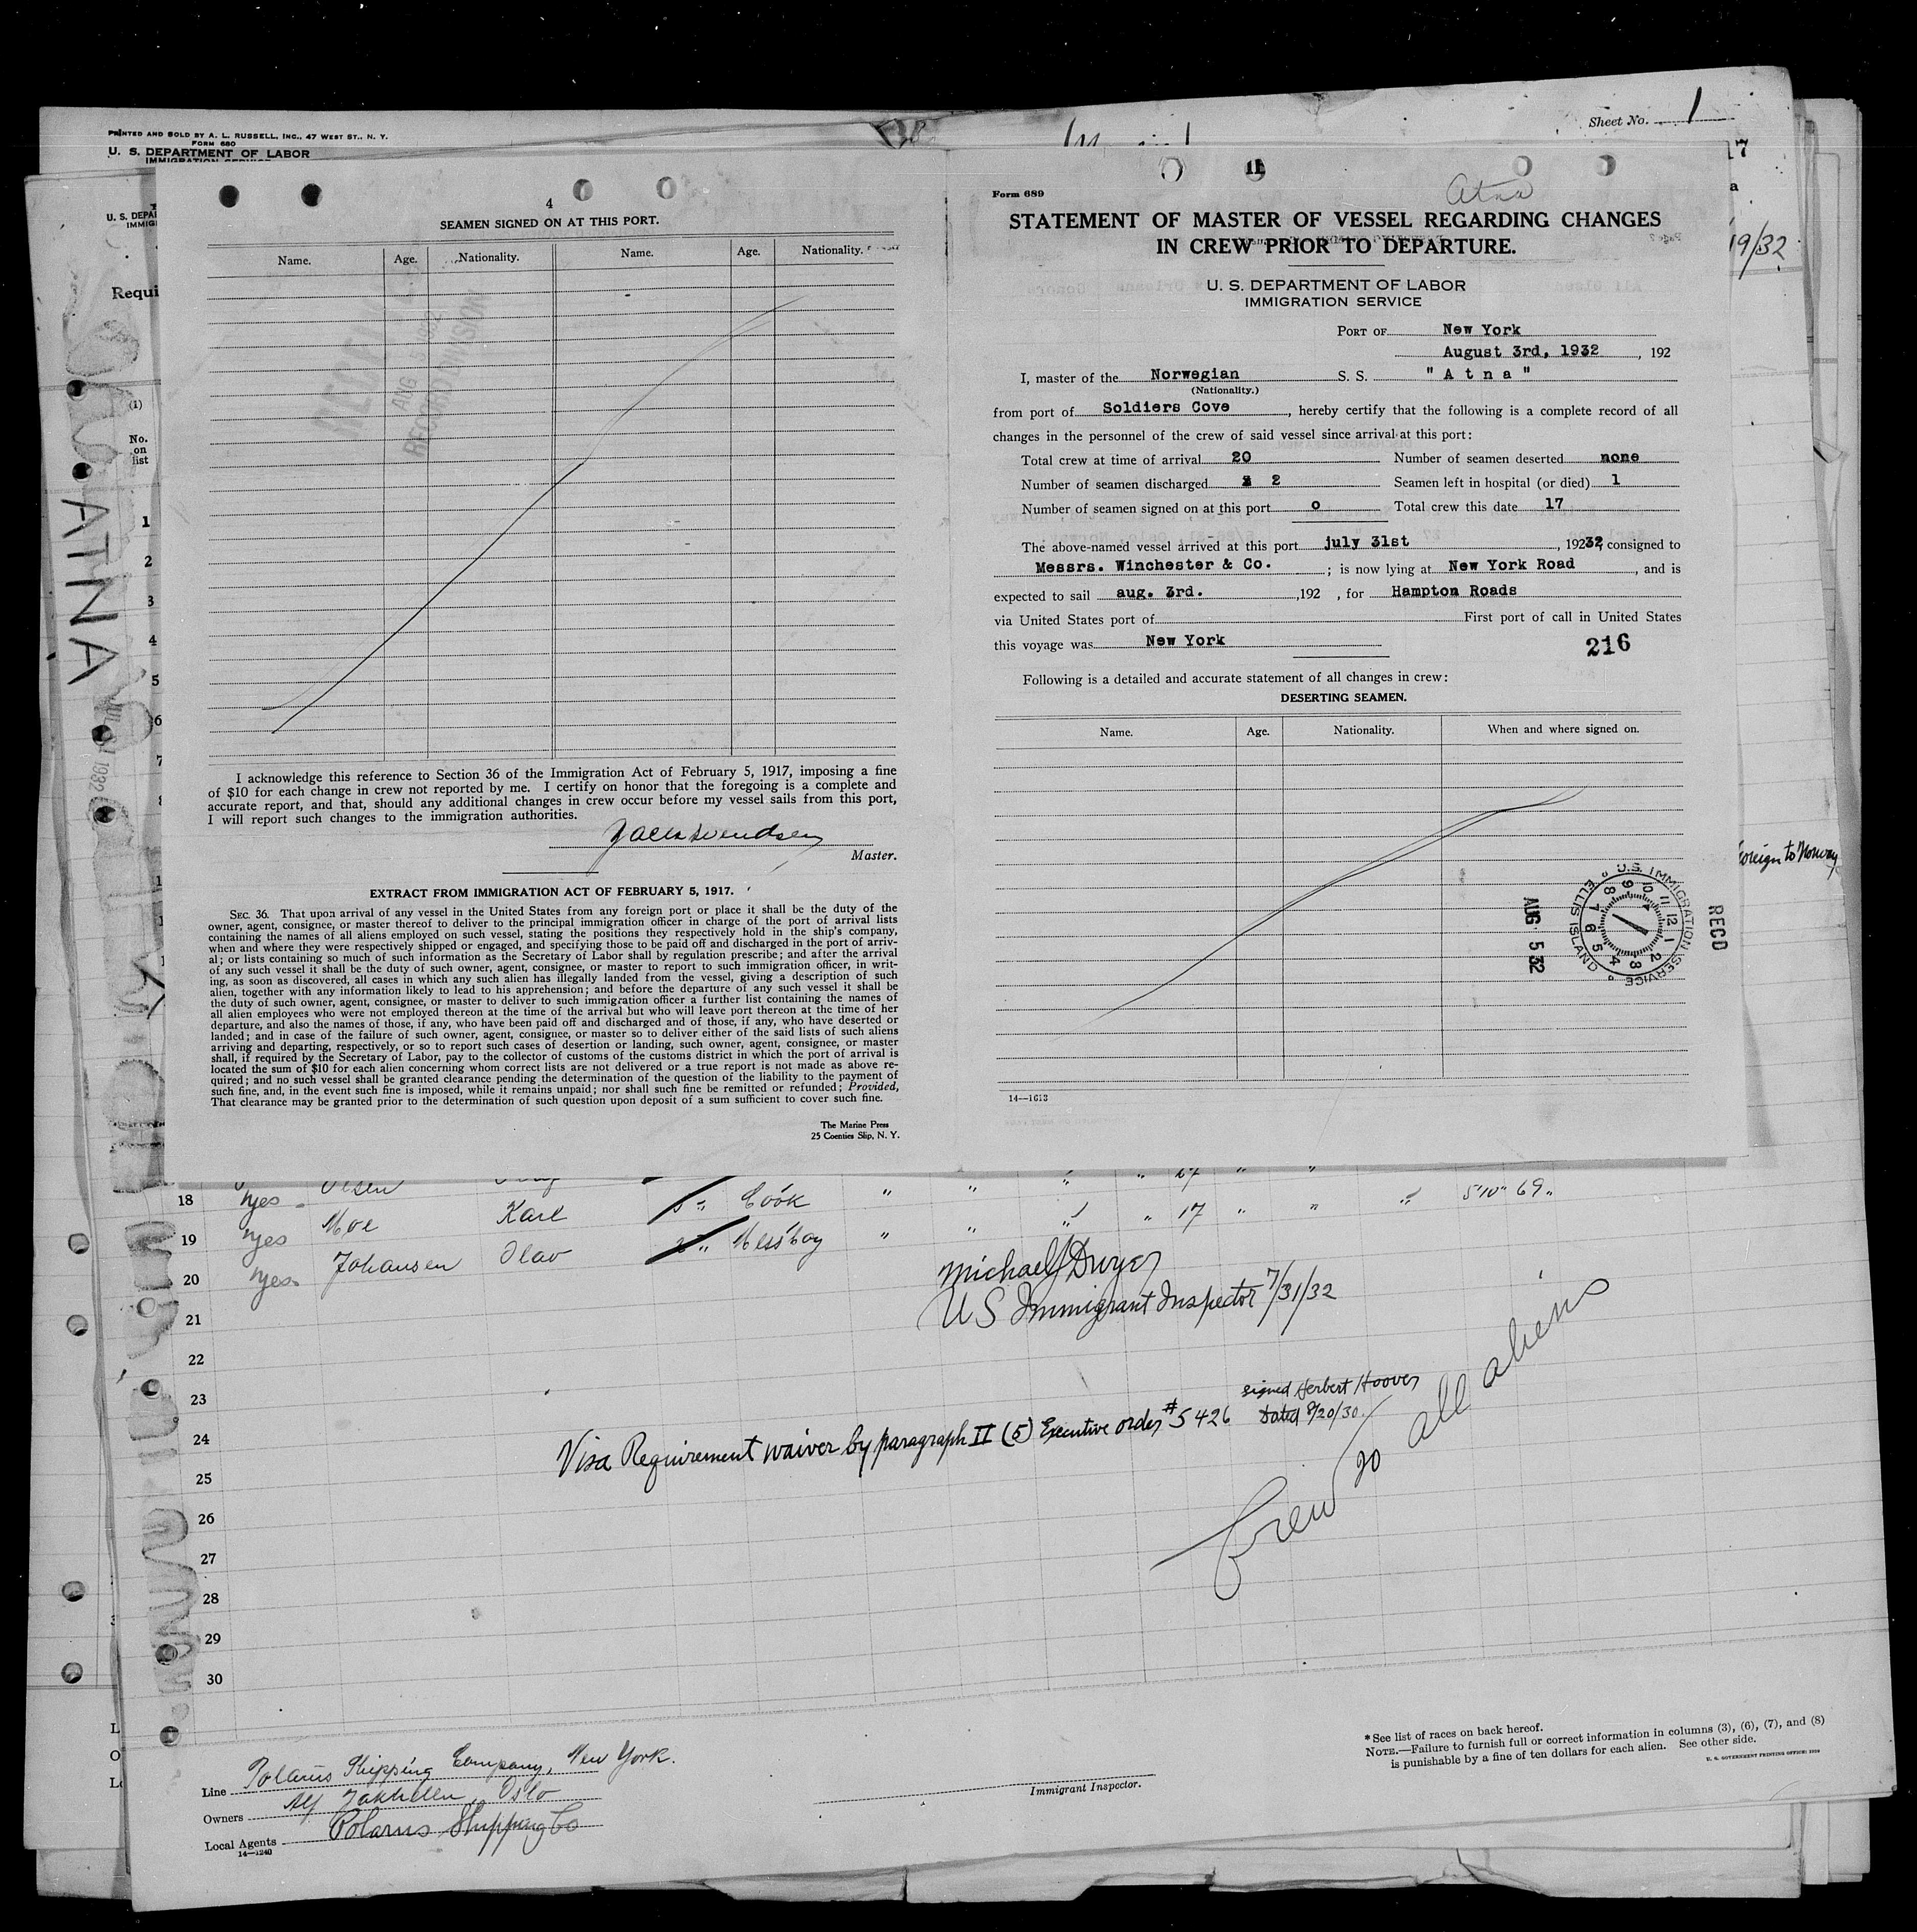 PRINTED AND SOLD BY A. L. RUSSELL, INC., 47 WEST ST., N. Y.
FORM 680
U. S. DEPARTMENT OF LABOR
IMMIGRATION SERVICE
Sheet No. 1
17
a
19/32
U. S. DEPA
IMMIG
Requi
(1)
No.
on
list
1
2
3
4
5
6
7
ATNA
1932
4
SEAMEN SIGNED ON AT THIS PORT.
Name. Age. Nationality. Name. Age. Nationality.
AUG 5 1932
RECORD DIVISION
I acknowledge this reference to Section 36 of the Immigration Act of February 5, 1917, imposing a fine
of $10 for each change in crew not reported by me. I certify on honor that the foregoing is a complete and
accurate report, and that, should any additional changes in crew occur before my vessel sails from this port,
I will report such changes to the immigration authorities.
Master.
EXTRACT FROM IMMIGRATION ACT OF FEBRUARY 5, 1917.
SEC. 36. That upon arrival of any vessel in the United States from any foreign port or place it shall be the duty of the
owner, agent, consignee, or master thereof to deliver to the principal immigration officer in charge of the port of arrival lists
containing the names of all aliens employed on such vessel, stating the positions they respectively hold in the ship's company,
when and where they were respectively shipped or engaged, and specifying those to be paid off and discharged in the port of arriv-
al; or lists containing so much of such information as the Secretary of Labor shall by regulation prescribe; and after the arrival
of any such vessel it shall be the duty of such owner, agent, consignee, or master to report to such immigration officer, in writ-
ing, as soon as discovered, all cases in which any such alien has illegally landed from the vessel, giving a description of such
alien, together with any information likely to lead to his apprehension; and before the departure of any such vessel it shall be
the duty of such owner, agent, consignee, or master to deliver to such immigration officer a further list containing the names of
all alien employees who were not employed thereon at the time of the arrival but who will leave port thereon at the time of her
departure, and also the names of those, if any, who have been paid off and discharged and of those, if any, who have deserted or
landed; and in case of the failure of such owner, agent, consignee, or master so to deliver either of the said lists of such aliens
arriving and departing, respectively, or so to report such cases of desertion or landing, such owner, agent, consignee, or master
shall, if required by the Secretary of Labor, pay to the collector of customs of the customs district in which the port of arrival is
located the sum of $10 for each alien concerning whom correct lists are not delivered or a true report is not made as above re-
quired; and no such vessel shall be granted clearance pending the determination of the question of the liability to the payment of
such fine, and, in the event such fine is imposed, while it remains unpaid; nor shall such fine be remitted or refunded; Provided,
That clearance may be granted prior to the determination of such question upon deposit of a sum sufficient to cover such fine.
The Marine Press
25 Coenties Slip, N. Y.
11
Form 689
Atna
STATEMENT OF MASTER OF VESSEL REGARDING CHANGES
IN CREW PRIOR TO DEPARTURE.
U. S. DEPARTMENT OF LABOR
IMMIGRATION SERVICE
PORT OF New York
August 3rd, 1932, 192
I, master of the Norwegian S. S. "Atna"
(Nationality.)
from port of Soldiers Cove, hereby certify that the following is a complete record of all
changes in the personnel of the crew of said vessel since arrival at this port:
Total crew at time of arrival 20 Number of seamen deserted none
Number of seamen discharged 2 Seamen left in hospital (or died) 1
Number of seamen signed on at this port o Total crew this date 17
The above-named vessel arrived at this port july 31st, 19232, consigned to
Messrs. Winchester & Co.; is now lying at New York Road, and is
expected to sail aug. 3rd. ,192 , for Hampton Roads
via United States port of First port of call in United States
this voyage was New York
216
Following is a detailed and accurate statement of all changes in crew:
DESERTING SEAMEN.
Name. Age. Nationality. When and where signed on.
14—1613
RECD
AUG 5 32
U.S. IMMIGRATION SERVICE
ELLIS ISLAND
1 2 3 4 5 6 7 8 9 10 11 12
foreign to Norway
18 yes Olsen " " " " 27 " "
19 yes Moe Karl 5 " Cook " " " " 17 " " " 5'10" 69 "
20 yes Johansen Olav " Messboy " "
21
22
23
24
25
26
27
28
29
30
Michael J Dwyer
US Immigrant Inspector 7/31/32
signed Herbert Hoover
Visa Requirement waiver by paragraph II (5) Executive order #5426 Dated 8/20/30
Crew 20 all aliens
Line Polarus Shipping Company, New York.
Owners Oslo
Local Agents Polarus Shipping Co
14—1240
Immigrant Inspector.
* See list of races on back hereof.
NOTE.—Failure to furnish full or correct information in columns (3), (6), (7), and (8)
is punishable by a fine of ten dollars for each alien. See other side.
U. S. GOVERNMENT PRINTING OFFICE: